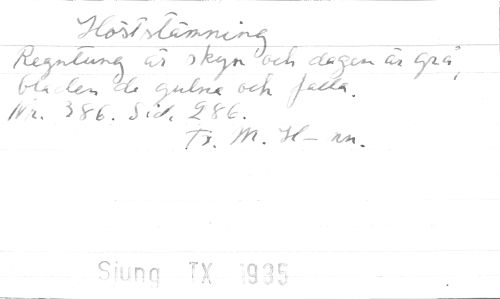 Höststämning
Regntung är skyn och dagen är grå,
bladen de gulna och falla.
Nr. 386. Sid. 286.
Tr. M. H-nn.
Sjung TX 1935